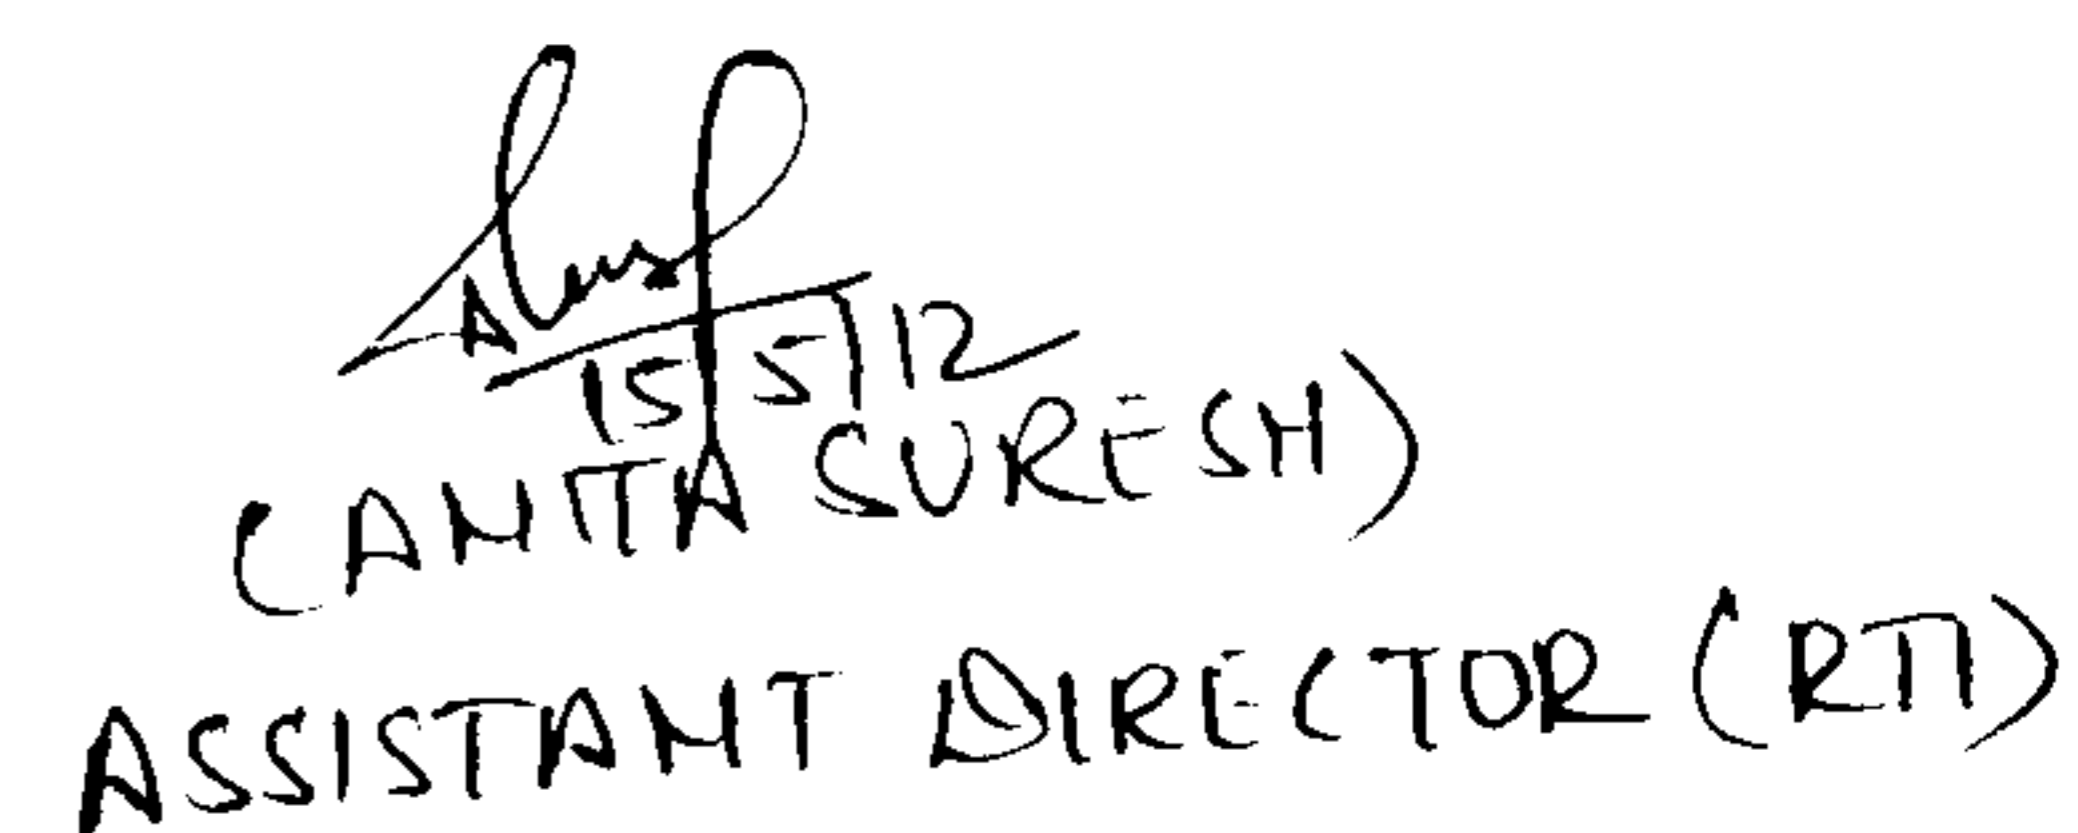 15/5/12
(ANITA SURESH)
ASSISTANT DIRECTOR (RTI)